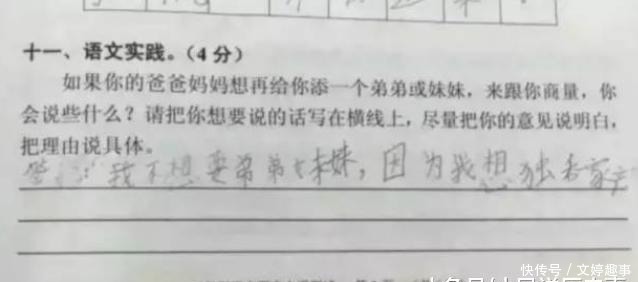 十一、语文实践。(4分)
如果你的爸爸妈妈想再给你添一个弟弟或妹妹，来跟你商量，你
会说些什么？请把你想要说的话写在横线上，尽量把你的意见说明白，
把理由说具体。
答：我不想要弟弟妹妹，因为我想独吞家产
快传号 / 文婷趣事